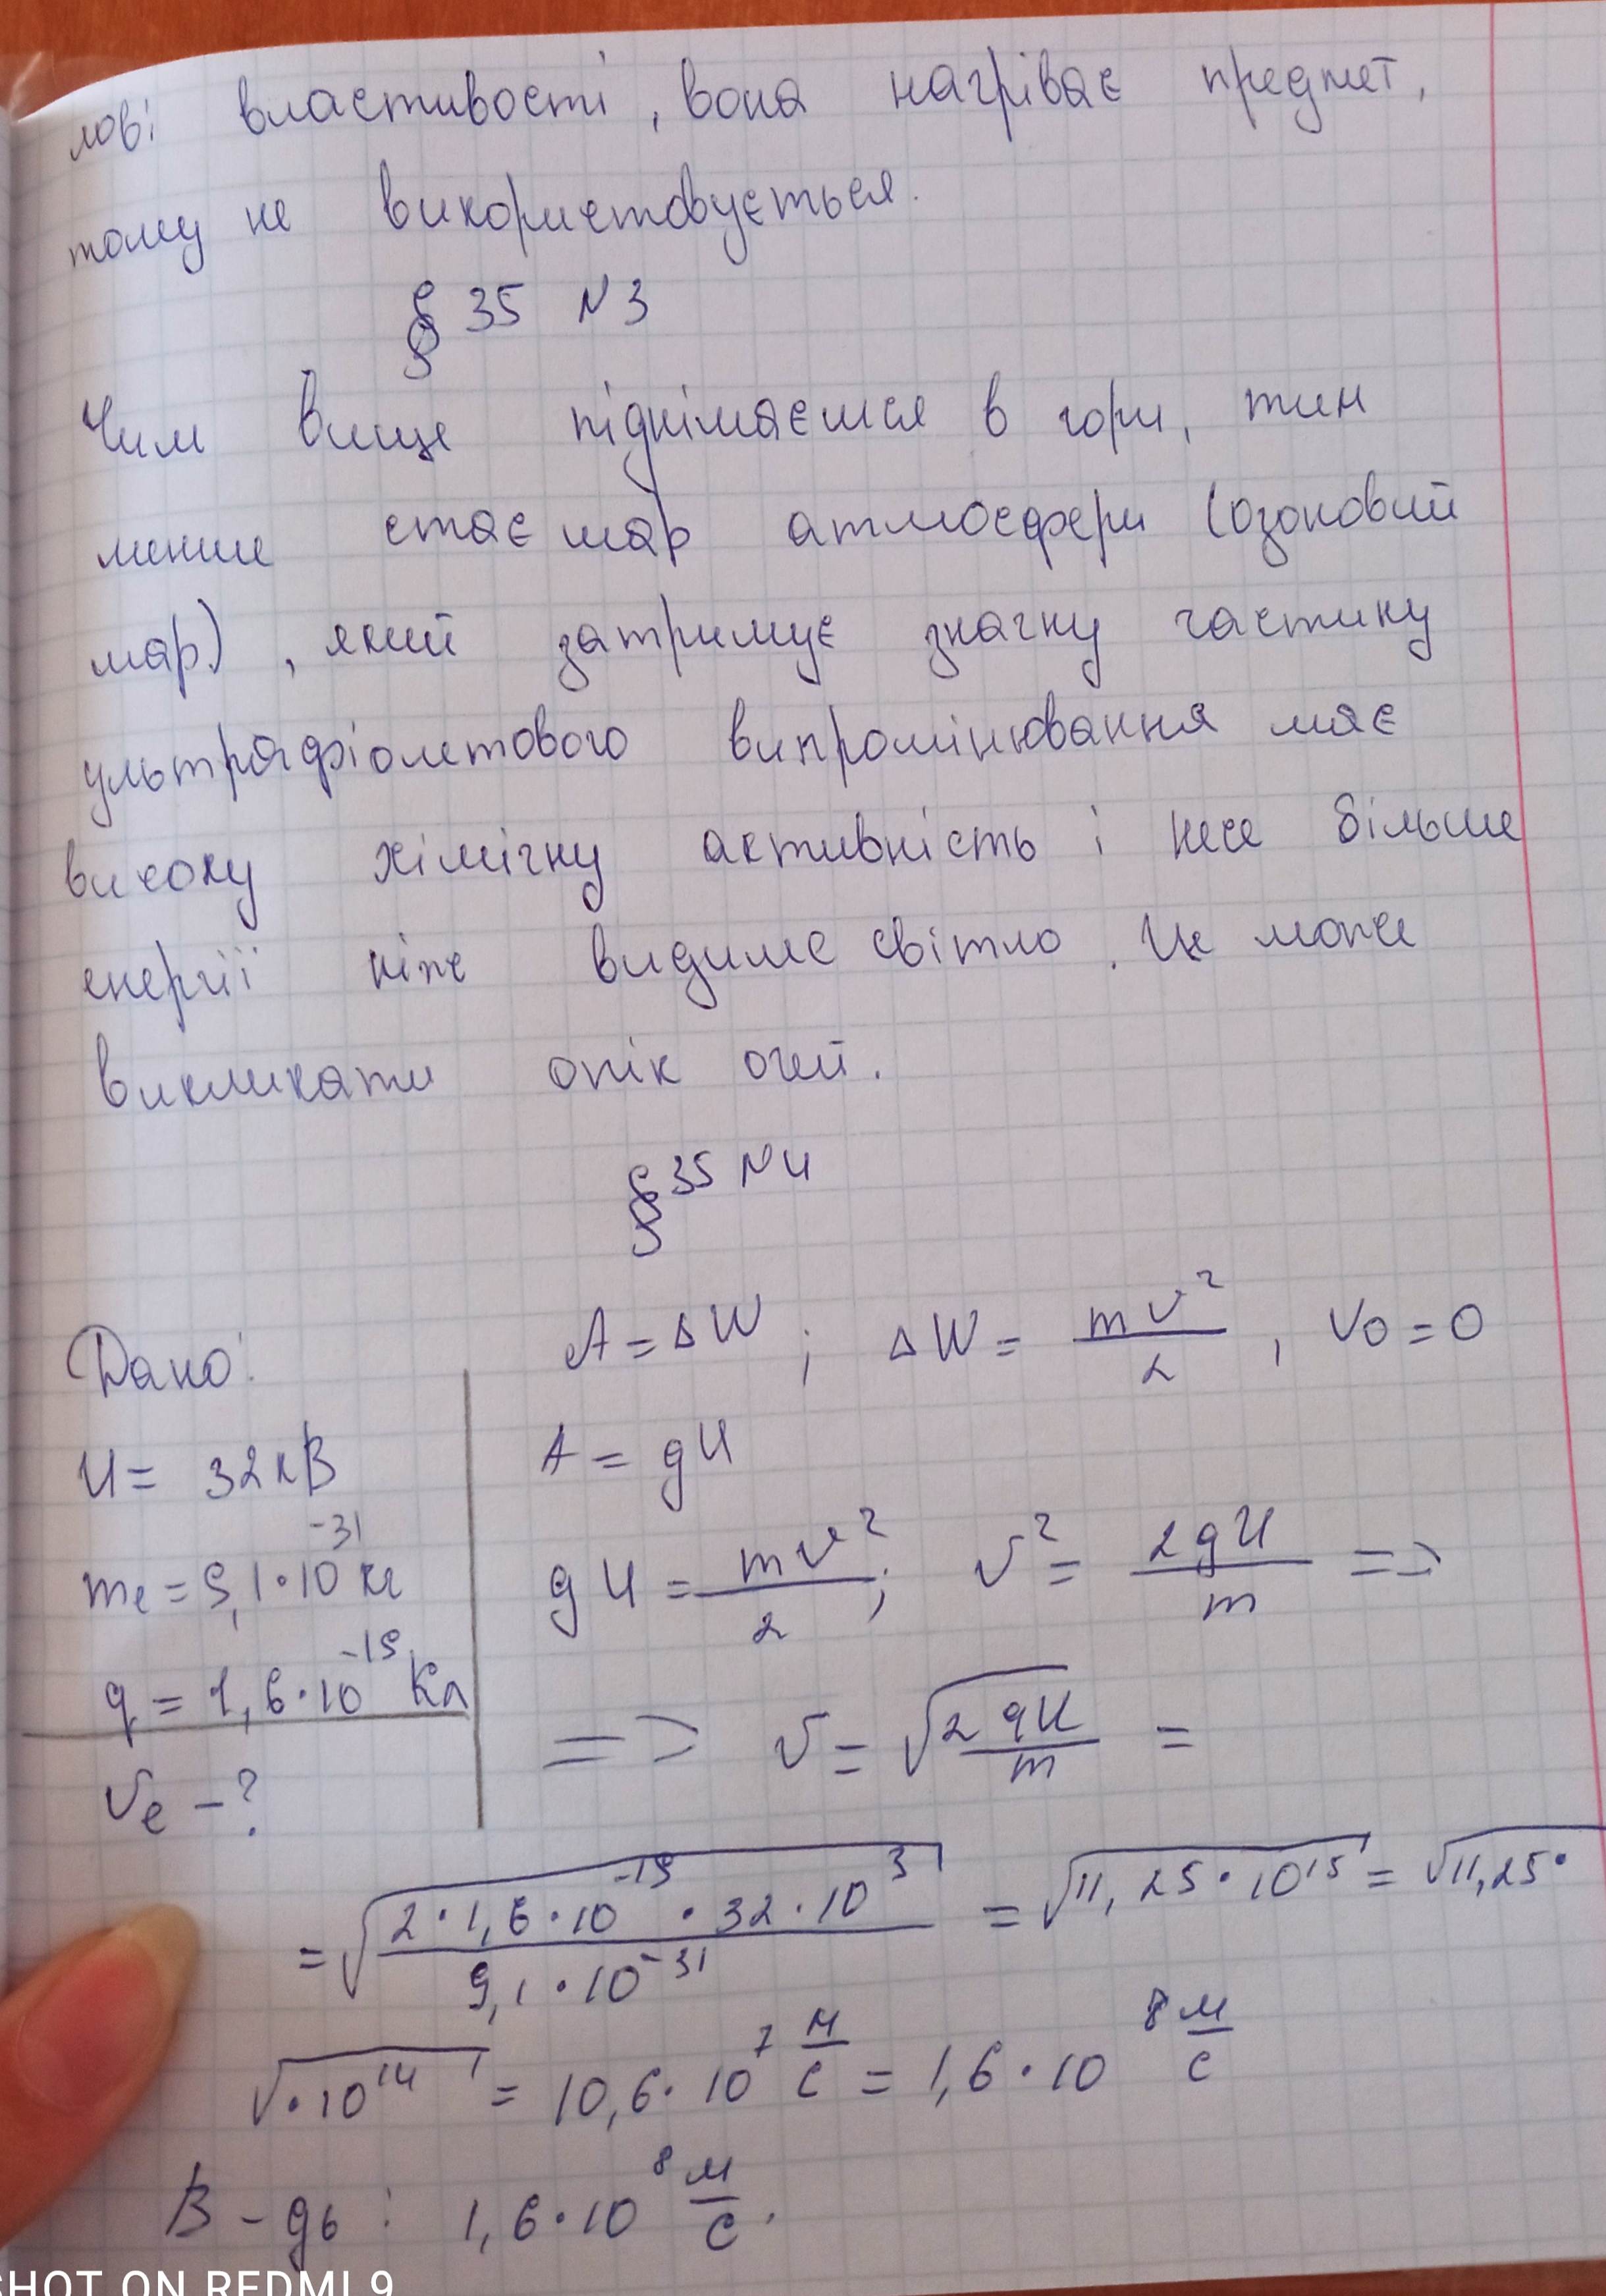 лові властивості, вона нагріває предмет,
тому не використовується.
§ 35 N 3
Чим вище піднімаєшся в гори, тим
менше стає шар атмосфери (озоновий
шар), який затримує значну частину
ультрафіолетового випромінювання має
високу хімічну активність і несе більше
енергії ніж видиме світло. Це може
викликати опік очей.
§ 35 N 4
Дано:
U = 32 кВ
me = 9,1·10^-31 кг
q = 1,6·10^-19 Кл
Ve - ?
A = ΔW ; ΔW = mv²/2 , V0 = 0
A = qU
qU = mv²/2 ; v² = 2qU/m =>
=> v = √(2qU/m) =
= √(2·1,6·10^-19·32·10^3 / 9,1·10^-31) = √(11,25·10^15) = √11,25·
√·10^14 = 10,6·10^7 м/с = 1,6·10^8 м/с
В-дь: 1,6·10^8 м/с.
SHOT ON REDMI 9